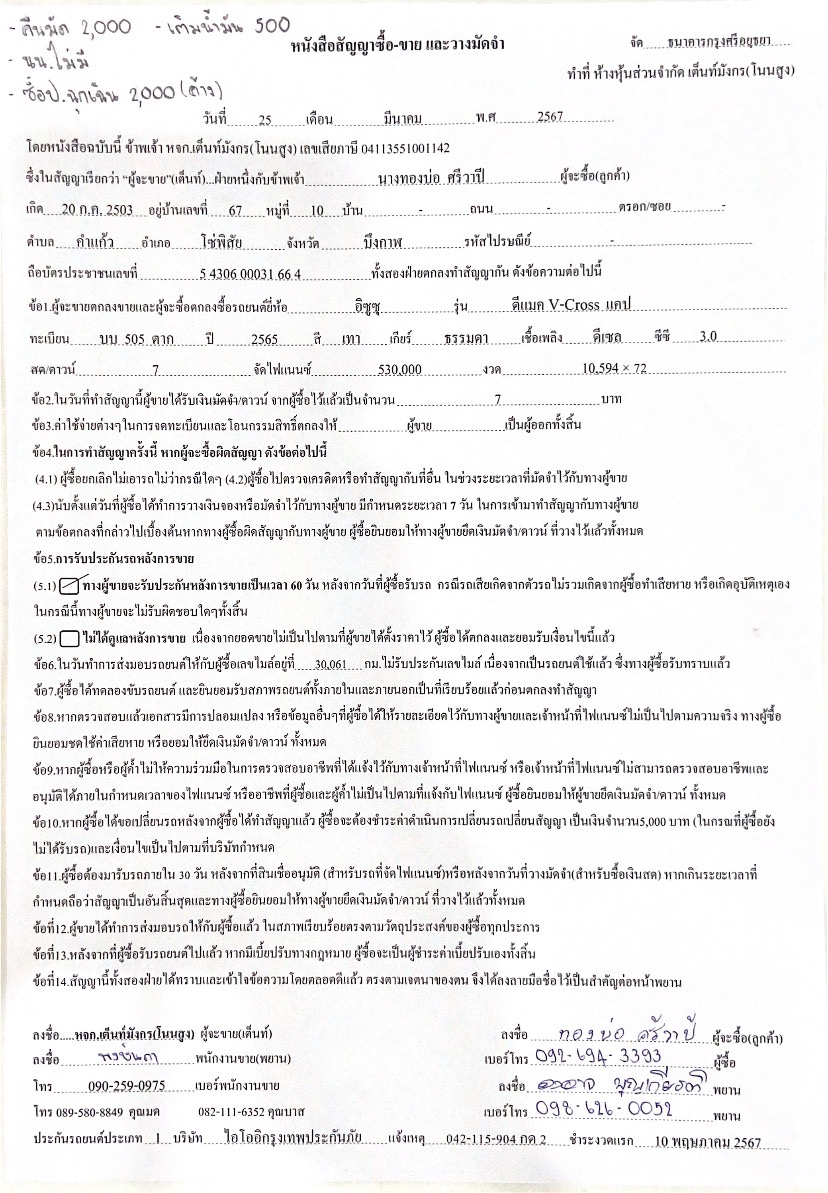 - คืนมัด 2,000 - เติมน้ำมัน 500
- นน.ไม่มี
- ช็อป.ฉุกเฉิน 2,000 (ค้าง)
หนังสือสัญญาซื้อ-ขาย และวางมัดจำ
จัด ธนาคารกรุงศรีอยุธยา
ทำที่ ห้างหุ้นส่วนจำกัด เต็นท์มังกร(โนนสูง)
วันที่ 25 เดือน มีนาคม พ.ศ 2567
โดยหนังสือฉบับนี้ ข้าพเจ้า หจก.เต็นท์มังกร(โนนสูง) เลขเสียภาษี 04113551001142
ซึ่งในสัญญาเรียกว่า "ผู้จะขาย"(เต็นท์)...ฝ่ายหนึ่งกับข้าพเจ้า นางทองบ่อ ศรีวาปี ผู้จะซื้อ(ลูกค้า)
เกิด 20 ก.ค. 2503 อยู่บ้านเลขที่ 67 หมู่ที่ 10 บ้าน - ถนน - ตรอก/ซอย -
ตำบล คำแก้ว อำเภอ โซ่พิสัย จังหวัด บึงกาฬ รหัสไปรษณีย์ -
ถือบัตรประชาชนเลขที่ 5 4306 00031 66 4 ทั้งสองฝ่ายตกลงทำสัญญากัน ดังข้อความต่อไปนี้
ข้อ1.ผู้จะขายตกลงขายและผู้จะซื้อตกลงซื้อรถยนต์ยี่ห้อ อิซูซุ รุ่น ดีแมค V-Cross แคป
ทะเบียน บบ 505 ตาก ปี 2565 สี เทา เกียร์ ธรรมดา เชื้อเพลิง ดีเซล ซีซี 3.0
สด/ดาวน์ 7 จัดไฟแนนซ์ 530,000 งวด 10,594 × 72
ข้อ2.ในวันที่ทำสัญญานี้ผู้ขายได้รับเงินมัดจำ/ดาวน์ จากผู้ซื้อไว้แล้วเป็นจำนวน 7 บาท
ข้อ3.ค่าใช้จ่ายต่างๆในการจดทะเบียนและโอนกรรมสิทธิ์ตกลงให้ ผู้ขาย เป็นผู้ออกทั้งสิ้น
ข้อ4.ในการทำสัญญาครั้งนี้ หากผู้จะซื้อผิดสัญญา ดังข้อต่อไปนี้
(4.1) ผู้ซื้อยกเลิกไม่เอารถไม่ว่ากรณีใดๆ (4.2)ผู้ซื้อไปตรวจเครดิตหรือทำสัญญากับที่อื่น ในช่วงระยะเวลาที่มัดจำไว้กับทางผู้ขาย
(4.3)นับตั้งแต่วันที่ผู้ซื้อได้ทำการวางเงินจองหรือมัดจำไว้กับทางผู้ขาย มีกำหนดระยะเวลา 7 วัน ในการเข้ามาทำสัญญากับทางผู้ขาย
ตามข้อตกลงที่กล่าวไปเบื้องต้นหากทางผู้ซื้อผิดสัญญากับทางผู้ขาย ผู้ซื้อยินยอมให้ทางผู้ขายยึดเงินมัดจำ/ดาวน์ ที่วางไว้แล้วทั้งหมด
ข้อ5.การรับประกันรถหลังการขาย
(5.1) ทางผู้ขายจะรับประกันหลังการขายเป็นเวลา 60 วัน หลังจากวันที่ผู้ซื้อรับรถ กรณีรถเสียเกิดจากตัวรถไม่รวมเกิดจากผู้ซื้อทำเสียหาย หรือเกิดอุบัติเหตุเอง
ในกรณีนี้ทางผู้ขายจะไม่รับผิดชอบใดๆทั้งสิ้น
(5.2) ไม่ได้ดูแลหลังการขาย เนื่องจากยอดขายไม่เป็นไปตามที่ผู้ขายได้ตั้งราคาไว้ ผู้ซื้อได้ตกลงและยอมรับเงื่อนไขนี้แล้ว
ข้อ6.ในวันทำการส่งมอบรถยนต์ให้กับผู้ซื้อเลขไมล์อยู่ที่ 30,061 กม.ไม่รับประกันเลขไมล์ เนื่องจากเป็นรถยนต์ใช้แล้ว ซึ่งทางผู้ซื้อรับทราบแล้ว
ข้อ7.ผู้ซื้อได้ทดลองขับรถยนต์ และยินยอมรับสภาพรถยนต์ทั้งภายในและภายนอกเป็นที่เรียบร้อยแล้วก่อนตกลงทำสัญญา
ข้อ8.หากตรวจสอบแล้วเอกสารมีการปลอมแปลง หรือข้อมูลอื่นๆที่ผู้ซื้อได้ให้รายละเอียดไว้กับทางผู้ขายและเจ้าหน้าที่ไฟแนนซ์ไม่เป็นไปตามความจริง ทางผู้ซื้อ
ยินยอมชดใช้ค่าเสียหาย หรือยอมให้ยึดเงินมัดจำ/ดาวน์ ทั้งหมด
ข้อ9.หากผู้ซื้อหรือผู้ค้ำไม่ให้ความร่วมมือในการตรวจสอบอาชีพที่ได้แจ้งไว้กับทางเจ้าหน้าที่ไฟแนนซ์ หรือเจ้าหน้าที่ไฟแนนซ์ไม่สามารถตรวจสอบอาชีพและ
อนุมัติได้ภายในกำหนดเวลาของไฟแนนซ์ หรืออาชีพที่ผู้ซื้อและผู้ค้ำไม่เป็นไปตามที่แจ้งกับไฟแนนซ์ ผู้ซื้อยินยอมให้ผู้ขายยึดเงินมัดจำ/ดาวน์ ทั้งหมด
ข้อ10.หากผู้ซื้อได้ขอเปลี่ยนรถหลังจากผู้ซื้อ ได้ทำสัญญาแล้ว ผู้ซื้อจะต้องชำระค่าดำเนินการเปลี่ยนรถเปลี่ยนสัญญา เป็นเงินจำนวน5,000 บาท (ในกรณีที่ผู้ซื้อยัง
ไม่ได้รับรถ)และเงื่อนไขเป็นไปตามที่บริษัทกำหนด
ข้อ11.ผู้ซื้อต้องมารับรถภายใน 30 วัน หลังจากที่สินเชื่ออนุมัติ (สำหรับรถที่จัดไฟแนนซ์)หรือหลังจากวันที่วางมัดจำ(สำหรับซื้อเงินสด) หากเกินระยะเวลาที่
กำหนดถือว่าสัญญาเป็นอันสิ้นสุดและทางผู้ซื้อยินยอมให้ทางผู้ขายยึดเงินมัดจำ/ดาวน์ ที่วางไว้แล้วทั้งหมด
ข้อที่12.ผู้ขายได้ทำการส่งมอบรถให้กับผู้ซื้อแล้ว ในสภาพเรียบร้อยตรงตามวัตถุประสงค์ของผู้ซื้อทุกประการ
ข้อที่13.หลังจากที่ผู้ซื้อรับรถยนต์ไปแล้ว หากมีเบี้ยปรับทางกฎหมาย ผู้ซื้อจะเป็นผู้ชำระค่าเบี้ยปรับเองทั้งสิ้น
ข้อที่14.สัญญานี้ทั้งสองฝ่ายได้ทราบและเข้าใจข้อความโดยตลอดดีแล้ว ตรงตามเจตนาของตน จึงได้ลงลายมือชื่อไว้เป็นสำคัญต่อหน้าพยาน
ลงชื่อ.....หจก.เต็นท์มังกร(โนนสูง) ผู้จะขาย(เต็นท์) ลงชื่อ ทองบ่อ ศรีวาปี ผู้จะซื้อ(ลูกค้า)
ลงชื่อ พนักงานขาย(พยาน) เบอร์โทร 092-694-3393 ผู้ซื้อ
โทร 090-259-0975 เบอร์พนักงานขาย ลงชื่อ พยาน
โทร 089-580-8849 คุณมด 082-111-6352 คุณบาส เบอร์โทร 098-626-0052 พยาน
ประกันรถยนต์ประเภท 1 บริษัท ไอโออิกรุงเทพประกันภัย แจ้งเหตุ 042-115-904 กด 2 ชำระงวดแรก 10 พฤษภาคม 2567